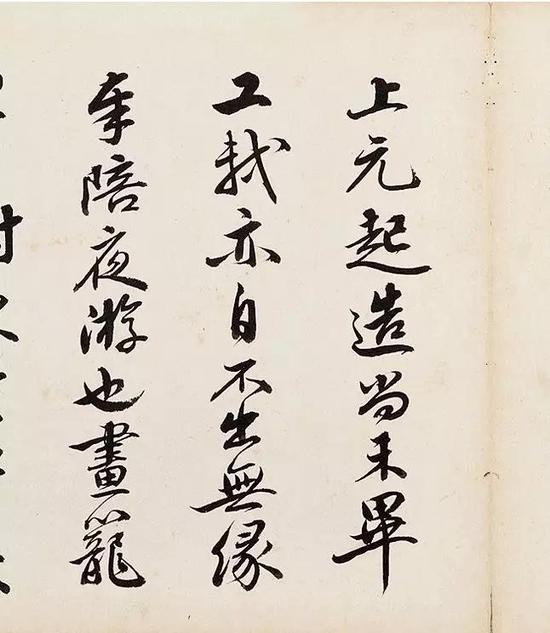 上元起造尚未畢
工軾亦自不出無緣
奉陪夜游也畫籠